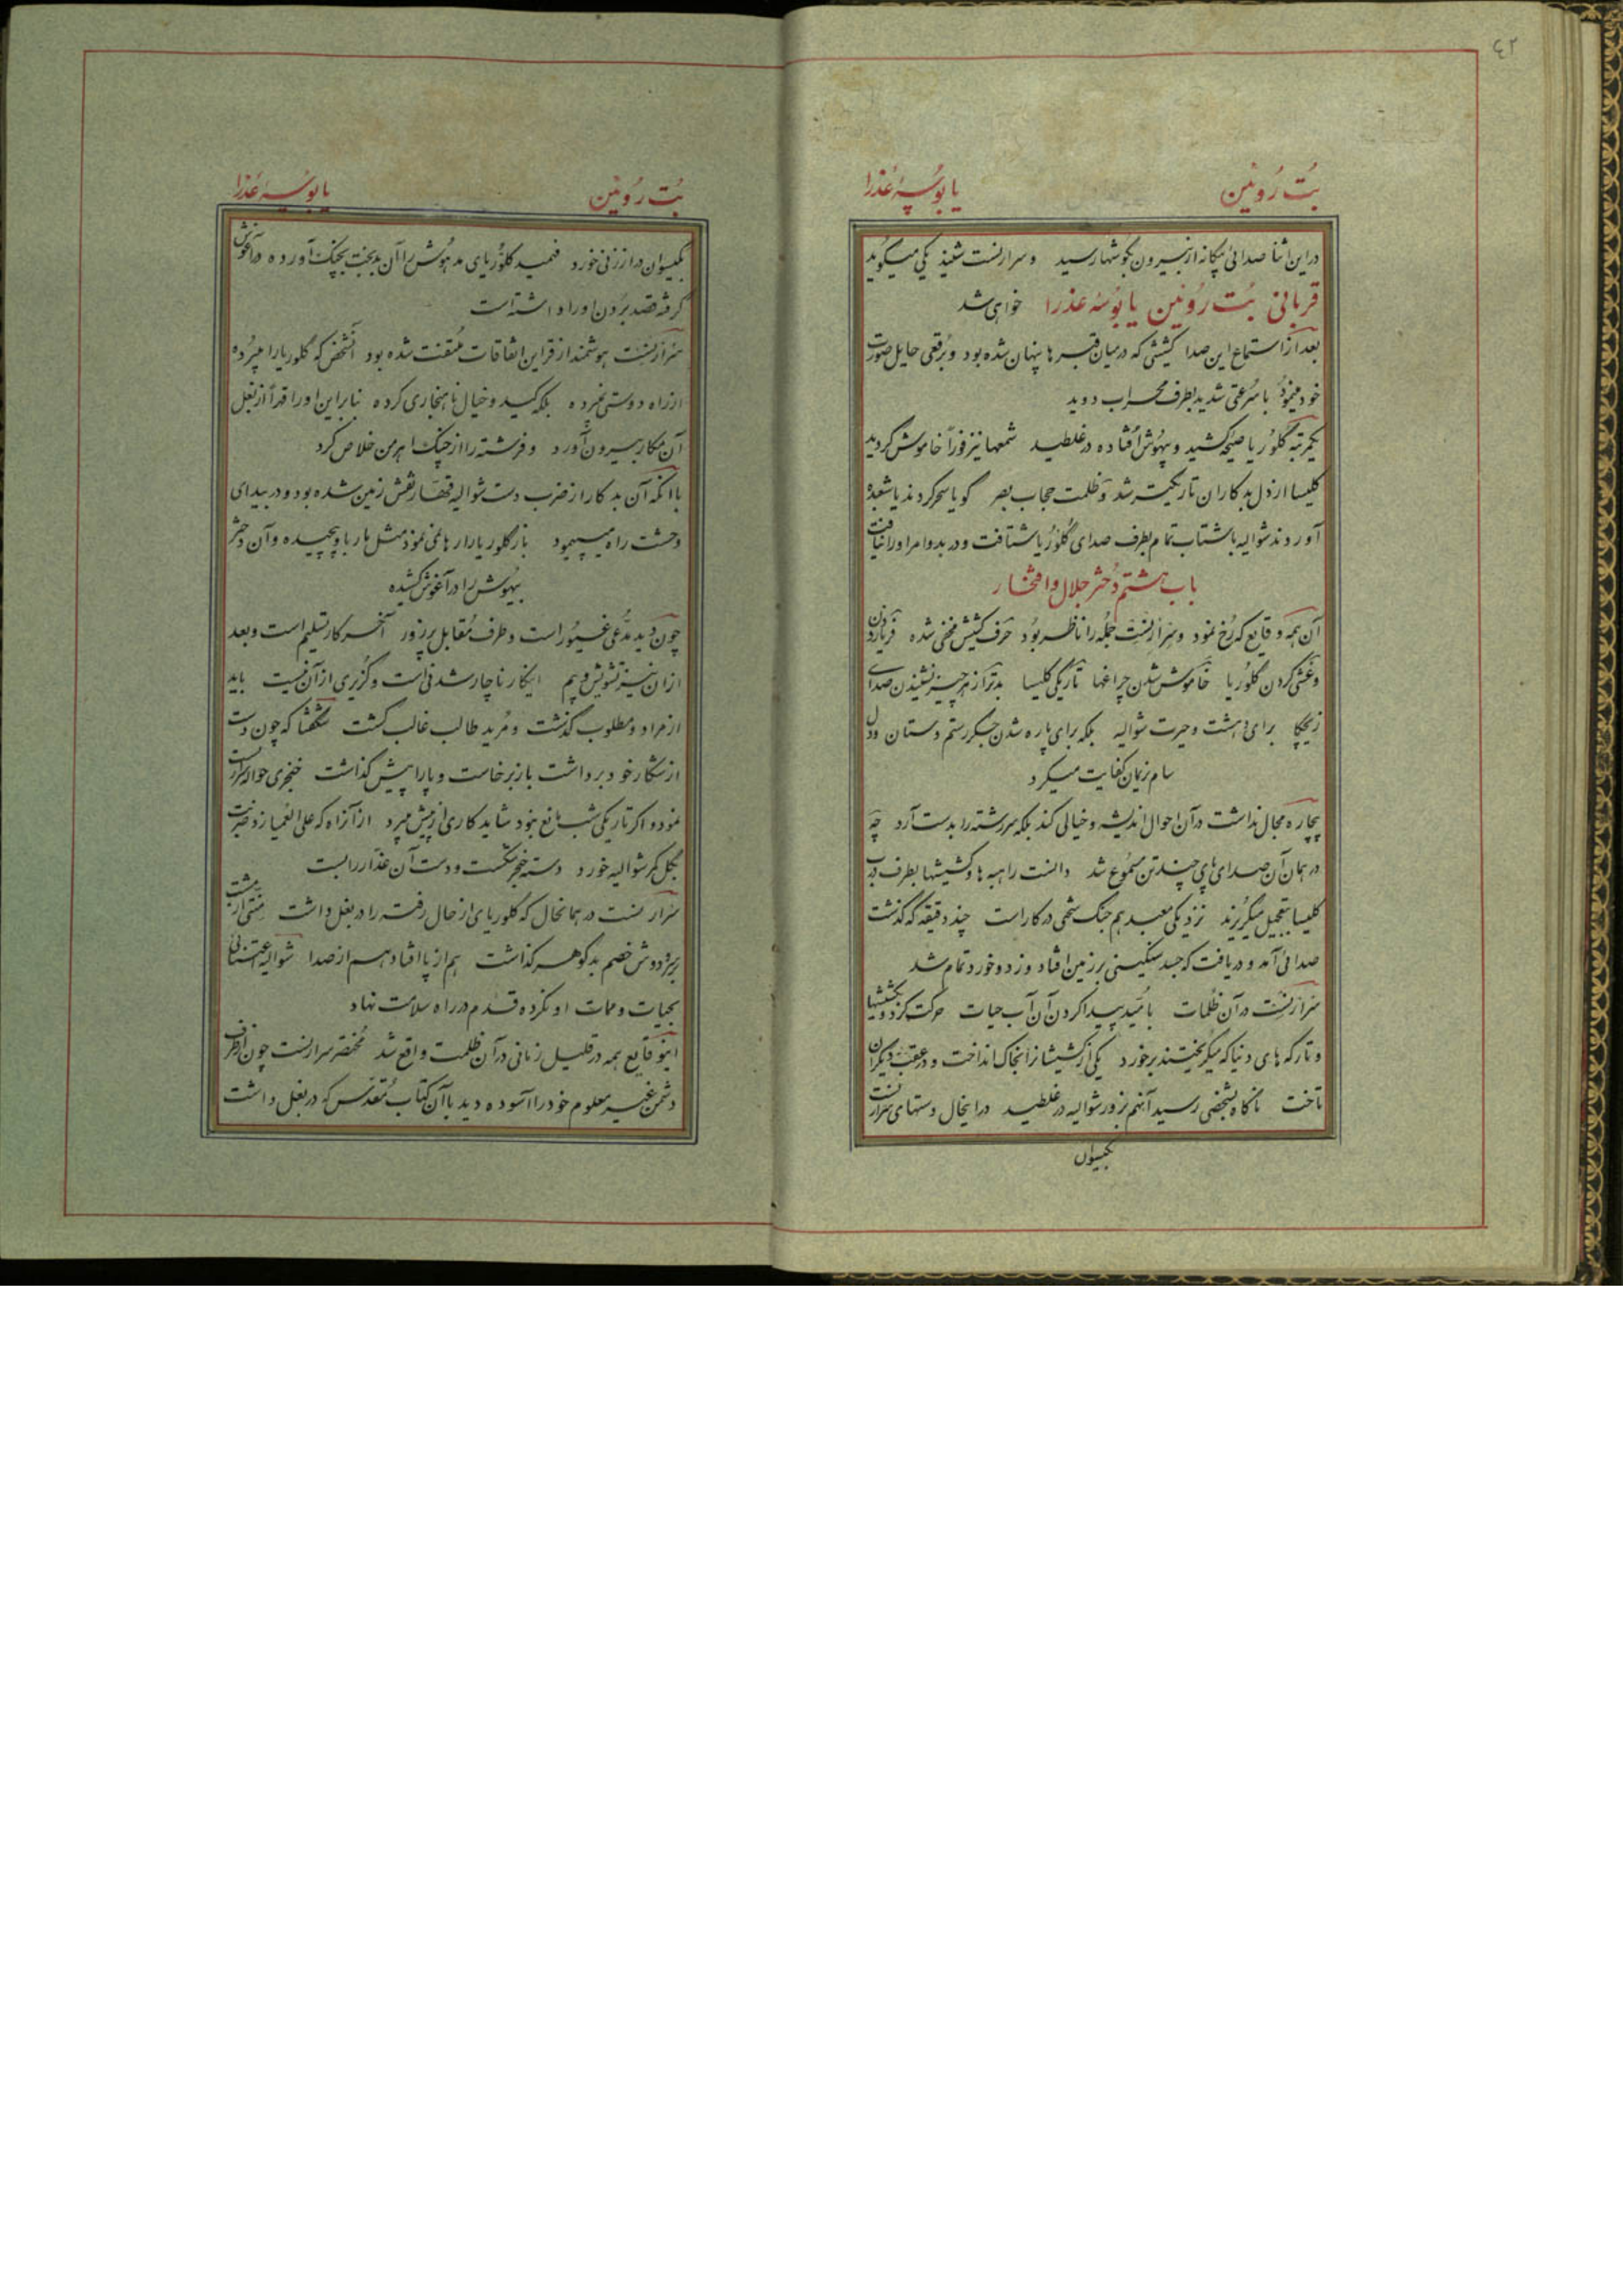 ٤٢
بُت رُوئین یا بُوسهٔ عَذرا
در این اثنا صدائی بیگانه از بیرون بگوشها رسید و سرارنست شنید یکی میگوید
قربانی بُت رُوئین یا بُوسهٔ عذرا خواهی شد
بعد از استماع این صدا کشیشی که در میان قبرها پنهان شده بود و بُرقعی حایل صورت
خود مینمود با سُرعتی شدید بطرف محراب دوید
یکمرتبه گلوُریا صیحه کشید و بیهوش اُفتاده در غلطید شمعها نیز فوراً خاموش گردید
کلیسا از دل بدکاران تاریکتر شد و ظلمت حجاب بصر گویا سحر کردند یا شعبده
آوردند شوالیه باشتاب تمام بطرف صدای گلوُریا شتافت و در بدو امر او را نیافت
باب هشتم دُختر جلال و افتخار
آن همه وقایع که رُخ نمود و سرارنست جُمله را ناظر بُود حرف کشیش مخفی شده فریاد زدن
و غشی کردن گلوُریا خاموش شدن چراغها تاریکی کلیسا بدتر از هر چیز نشنیدن صدای
زیچکا برای دهشت و حیرت شوالیه بلکه برای پاره شدن جگر رستم دستان و دل
سام نریمان کفایت میکرد
بیچاره مجال نداشت در آن احوال اندیشه و خیالی کند بلکه سررشته را بدست آرد چه
در همان آن صدای پای چند تن مسمُوع شد دانست راهبه ها و کشیشها بطرف درب
کلیسا بتعجیل میگریزند نزدیکی معبد هم جنگ سختی در کار است چند دقیقه که گذشت
صدائی آمد و دریافت که جسد سنگینی بر زمین افتاد و زد و خورد تمام شد
سرارنست در آن ظُلمات باُمید پیدا کردن آن آب حیات حرکت کرد و بکشیشها
و تارکه های دنیا که میگریختند برخورد یکی از کشیشانرا بخاک انداخت و در عقب دیگران
تاخت ناگاه بشخصی رسید آنهم بزور شوالیه در غلطید در اینحال دستهای سرارنست
بگیسوان
بُت رُوئین یا بُوسهٔ عَذرا
بگیسوان دراز زنی خورد فهمید گلوُریای مدهُوش را آن بدبخت بچنگ آورده در آغوش
گرفته قصد بردن او را داشته است
سرارنست هوشمند از قراین اتفاقات مُلتفت شده بود آنشخص که گلوریا را میبُرده
از راه دوستی نبرده بلکه کید و خیال ناهنجاری کرده بنابراین او را قهراً از بغل
آن مکار بیرون آورد و فرشته را از چنگ اهرمن خلاص کرد
با آنکه آن بدکار از ضرب دست شوالیه قهّار نقش زمین شده بود و در بیدای
وحشت راه میپیمود باز گلوریا را رها نمی نمود مثل مار با و پیچیده و آن دختر
بیهُوش را در آغوش کشیده
چون دید مدّعی غیُور است و طرف مُقابل پر زور آخر کار تسلیم است و بعد
از آن نیز تشویش و بیم اینکار ناچار شدنی است و گزیری از آن نیست باید
از مراد و مطلوب گذشت و مرید طالب غالب گشت شگفتا که چون دست
از شکار خود برداشت باز برخاست و پا را پیش گذاشت خنجری حواله سرارنست
نمود و اگر تاریکی شب مانع نبود شاید کاری از پیش میبرد از آنراه که علی العمیا زد ضربت
بگل کمر شوالیه خورد دسته خنجر شکست و دست آن غدّار را بست
سرارنست در همانحال که گلوریای از حال رفته را در بغل داشت مشتی از پشت
بر سر و دوش خصم بدگوهر گذاشت هم از پا افتاد هم از صدا شوالیه اعتنائی
بحیات و ممات او نکرده قدم در راه سلامت نهاد
اینوقایع همه در قلیل زمانی در آن ظلمت واقع شد مُختصر سرارنست چون از طرف
دشمن غیر معلوم خود را آسوده دید با آن کتاب مُقدّس که در بغل داشت